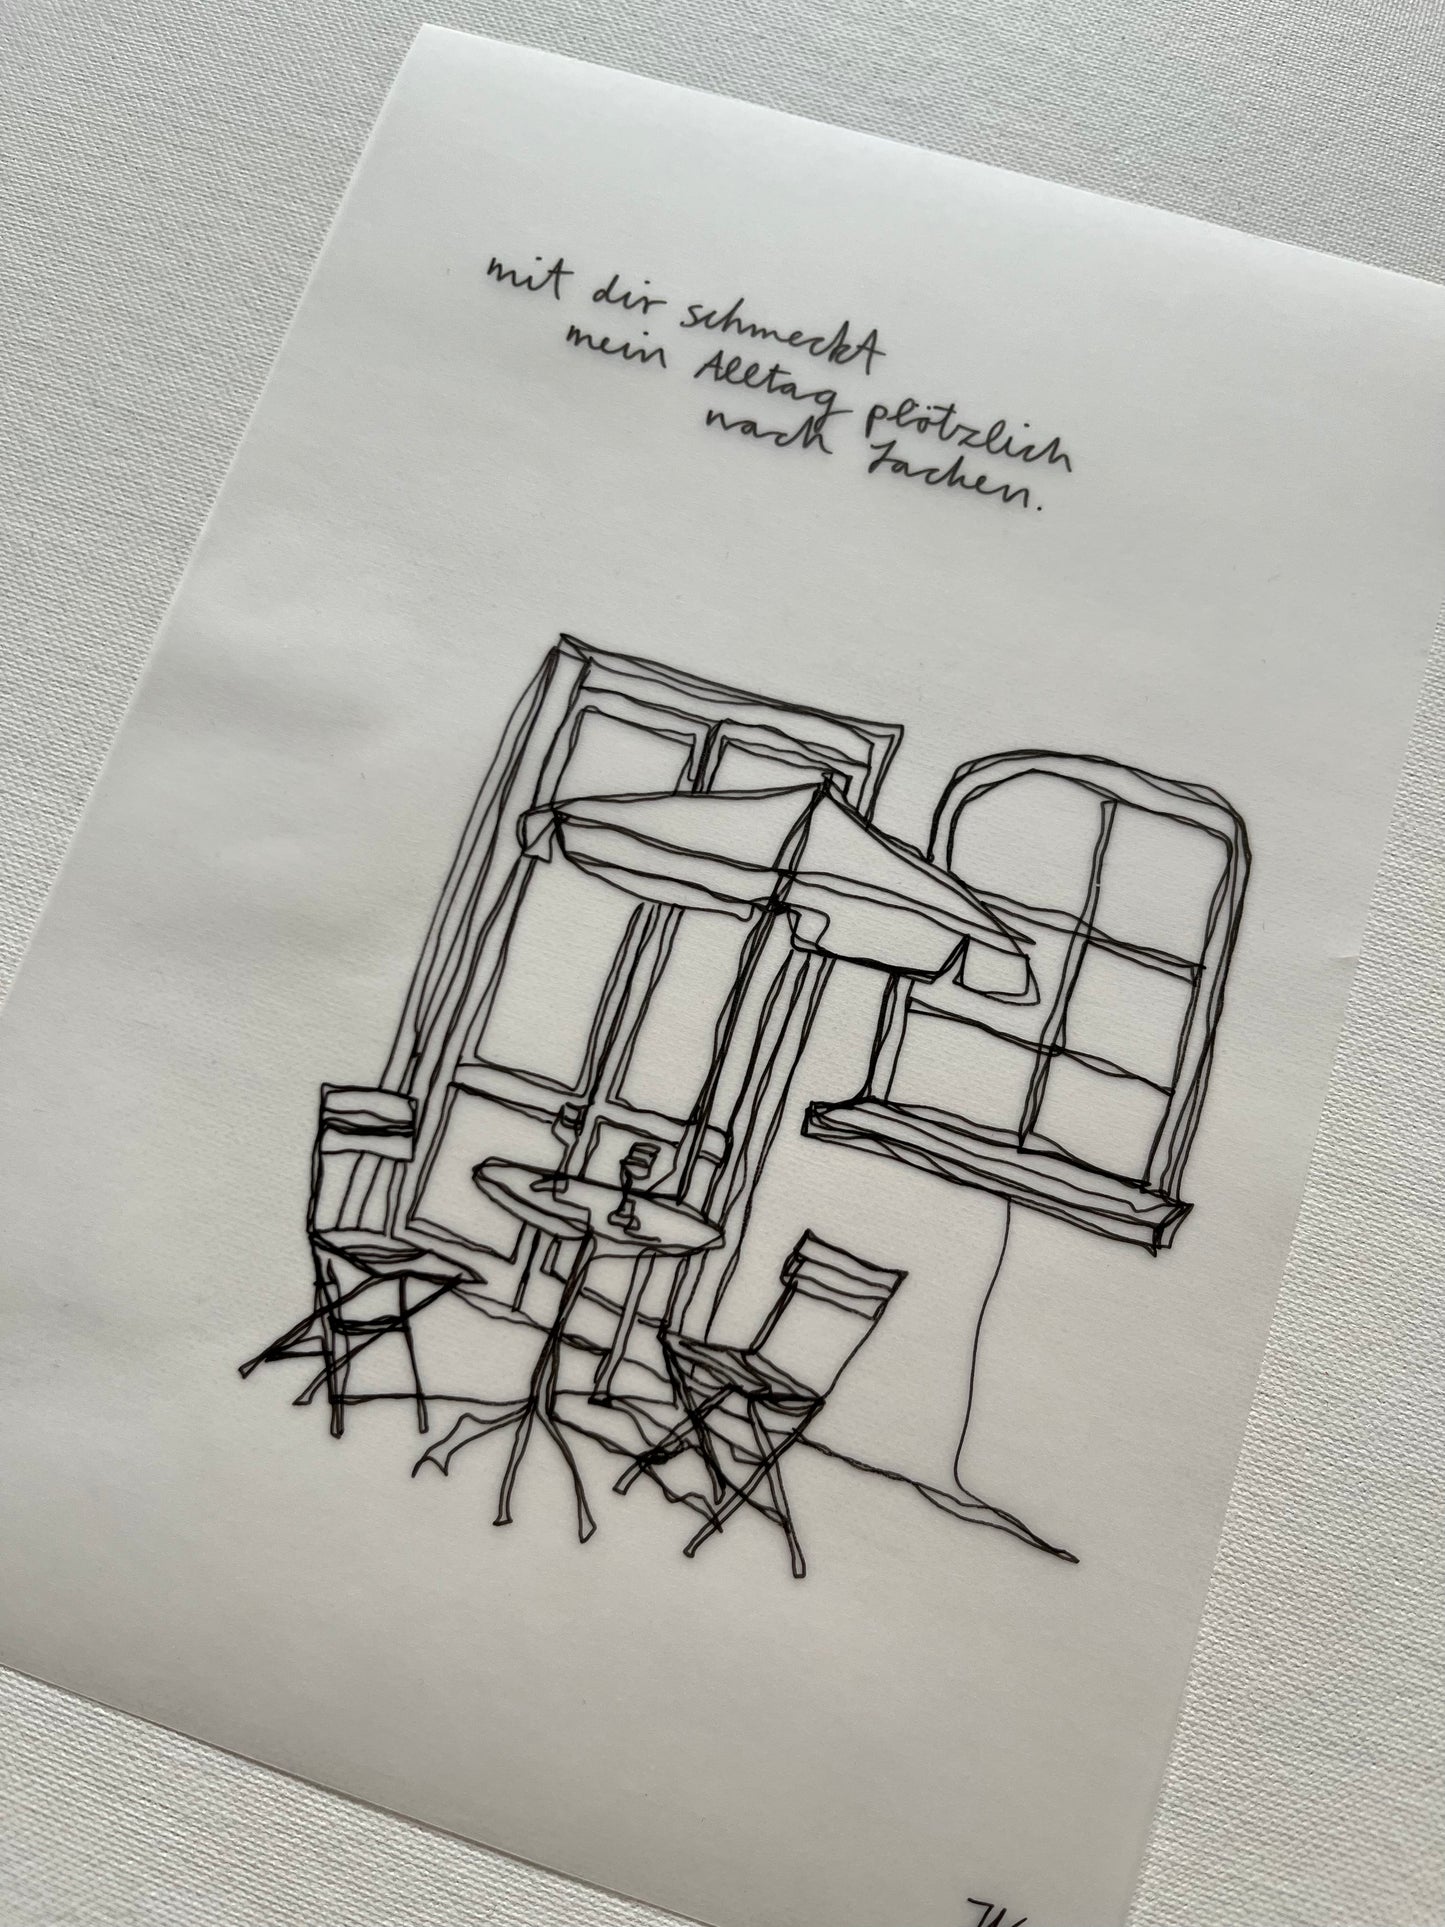 mit dir schmeckt
mein Alltag plötzlich
nach Lachen.